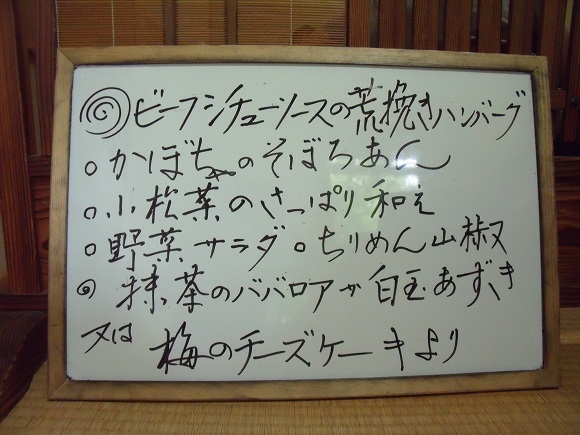 ◎ビーフシチューソースの荒挽きハンバーグ
○かぼちゃのそぼろあん
○小松菜のさっぱり和え
○野菜サラダ ○ちりめん山椒
◎抹茶のババロア 白玉あずき
又は 梅のチーズケーキより